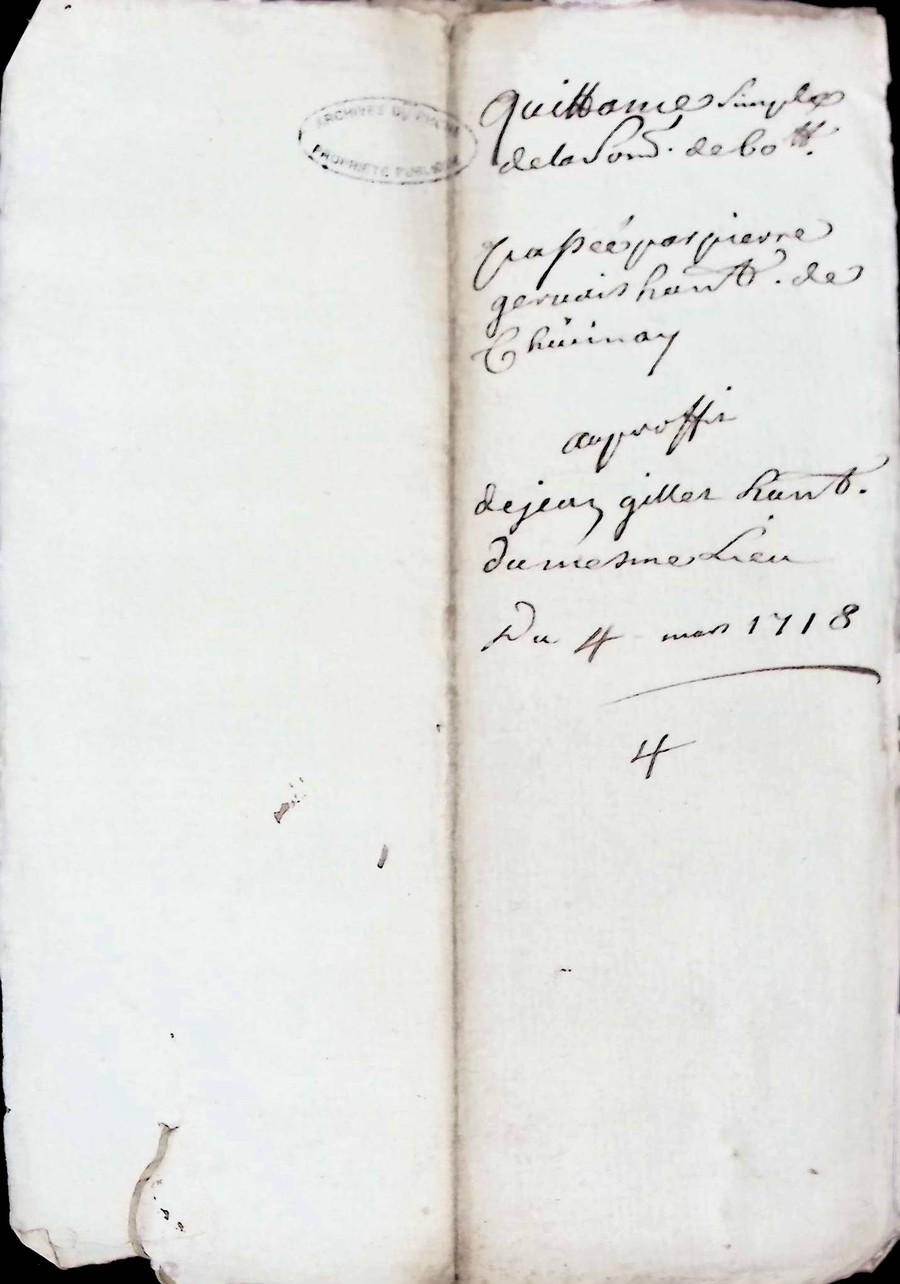 ARCHIVES DU RHONE
PROPRIÉTÉ PUBLIQUE
Quittance simple
de la som. de 60 tt.
passée par pierre
gervais hant. de
Thürinay
au proffit
de jean gillet hant.
du mesme Lieu
Du 4 mars 1718
4